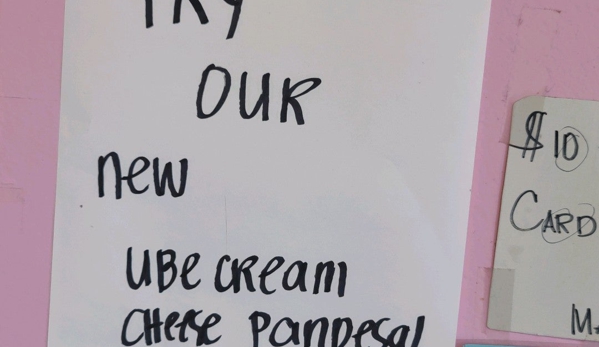 TRY
OUR
new
UBE CREAM
CHEESE PANDESAL
$10
CARD